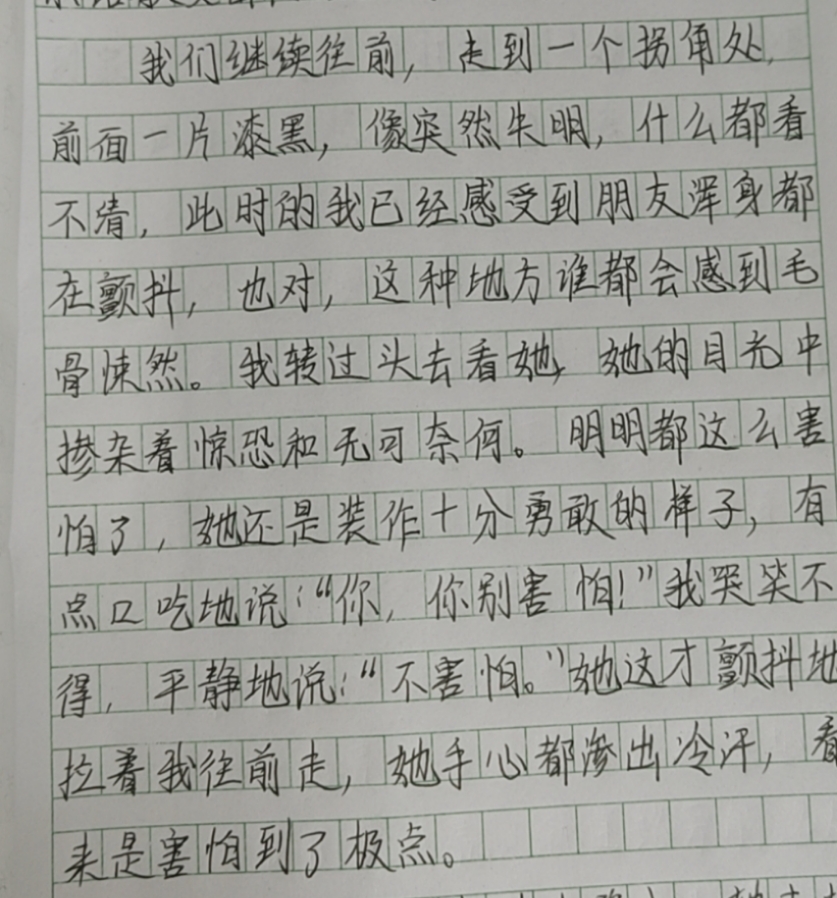 我们继续往前，走到一个拐角处，
前面一片漆黑，像突然失明，什么都看
不清，此时的我已经感受到朋友浑身都
在颤抖，也对，这种地方谁都会感到毛
骨悚然。我转过头去看她，她的目光中
掺杂着惊恐和无可奈何。明明都这么害
怕了，她还是装作十分勇敢的样子，有
点口吃地说：“你，你别害怕！”我哭笑不
得，平静地说：“不害怕。”她这才颤抖地
拉着我往前走，她手心都渗出冷汗，看
来是害怕到了极点。